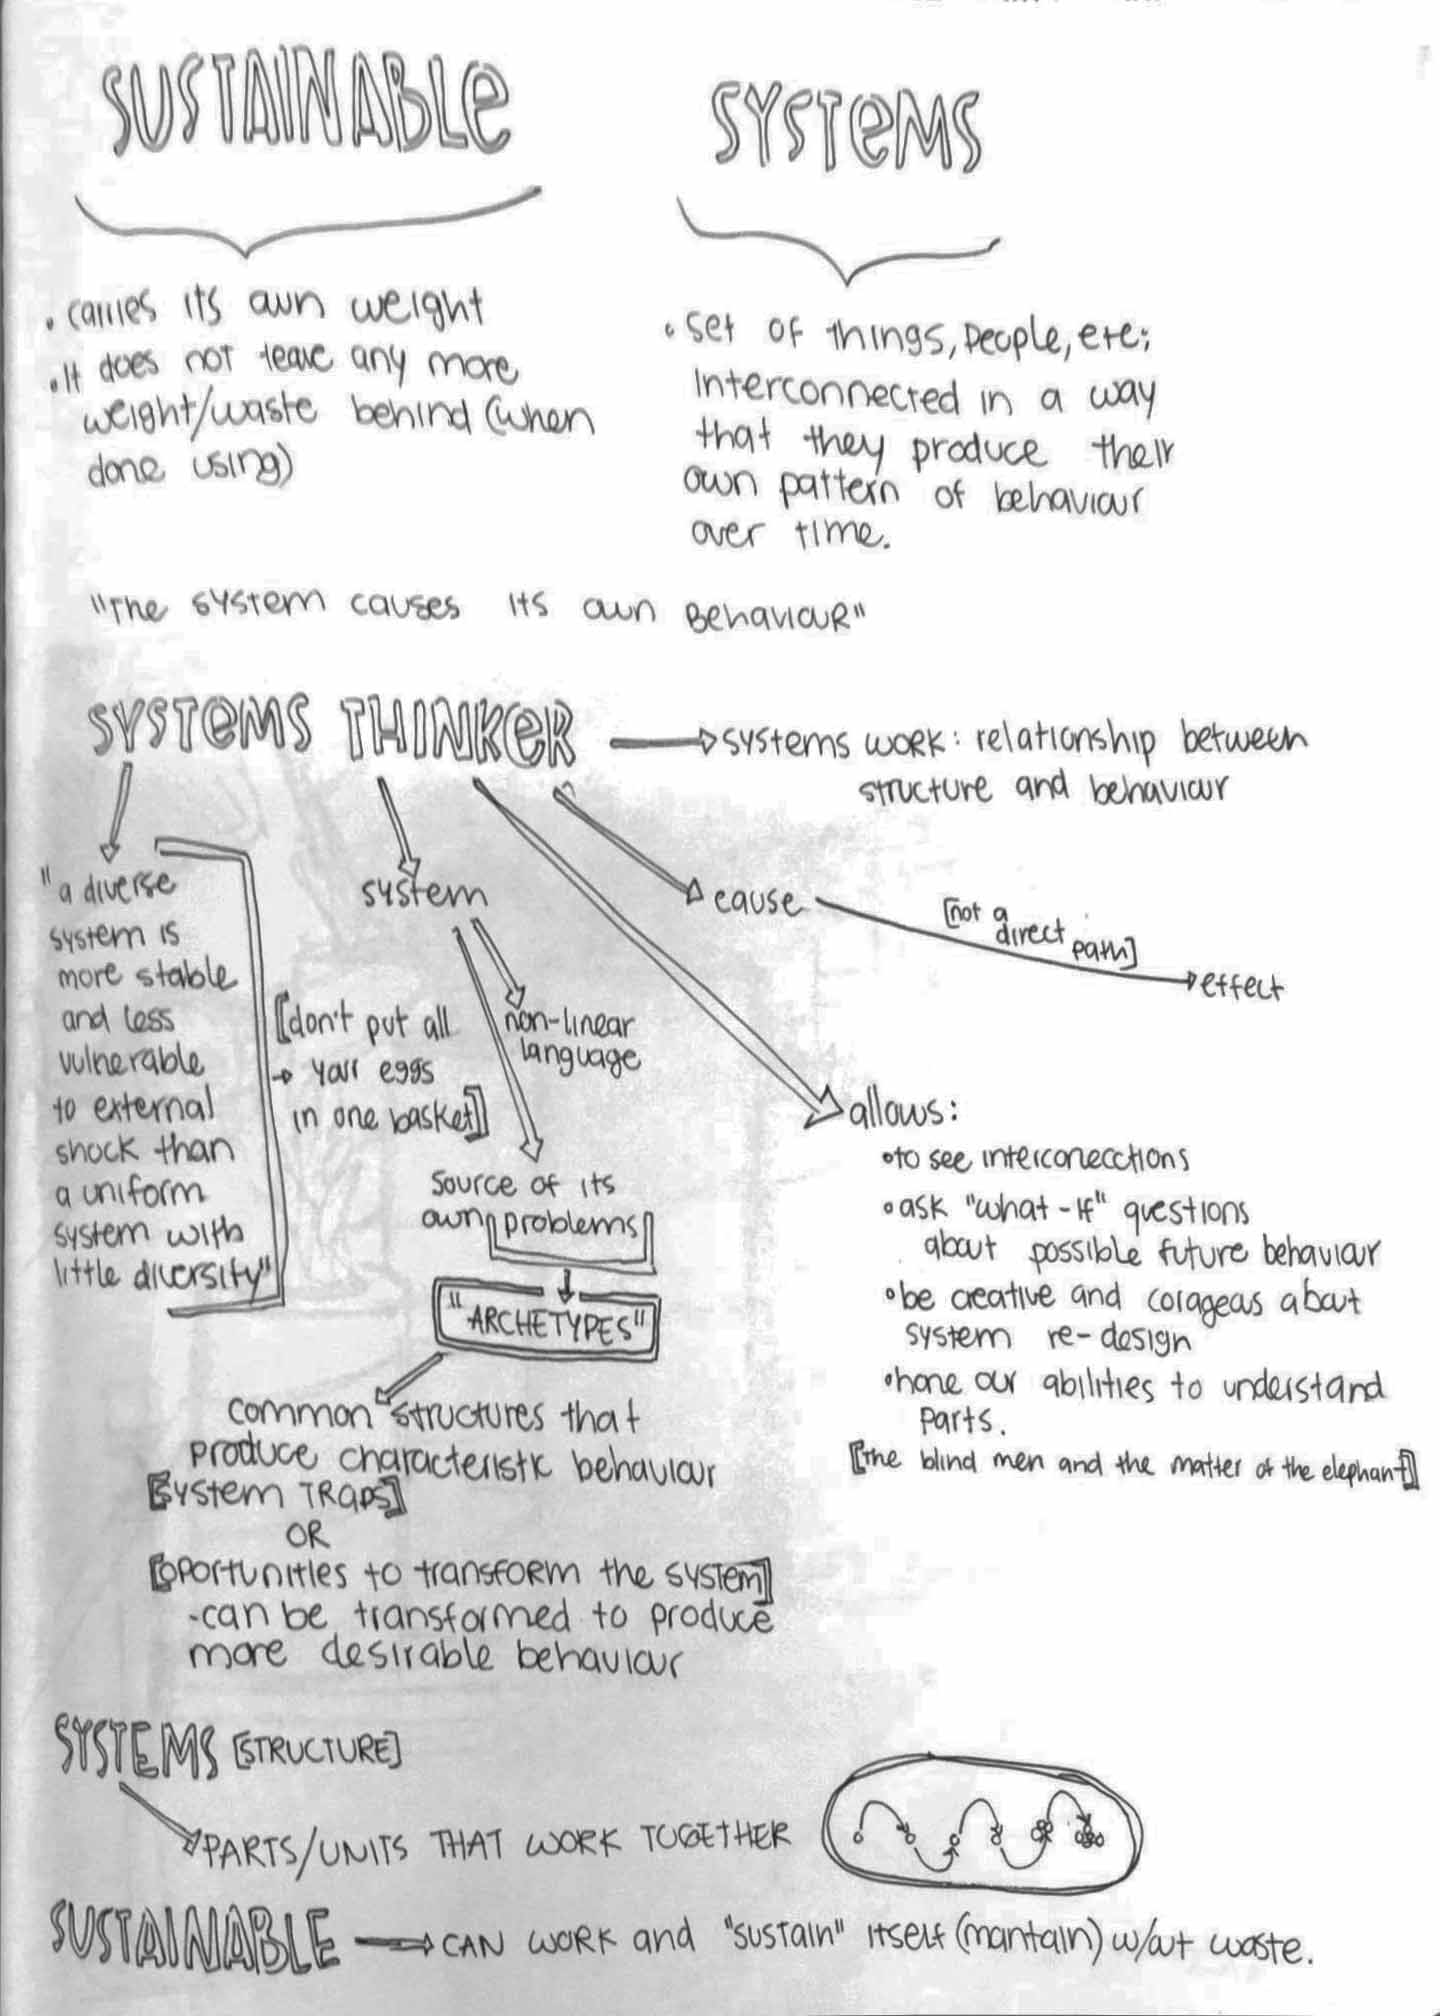 SUSTAINABLE
• carries its own weight
• It does not leave any more
weight/waste behind (when
done using)
SYSTEMS
• set of things, people, etc;
interconnected in a way
that they produce their
own pattern of behaviour
over time.
"The system causes its own Behaviour"
SYSTEMS THINKER
systems work: relationship between
structure and behaviour
"a diverse
system is
more stable
and less
vulnerable
to external
shock than
a uniform
system with
little diversity"
[don't put all
your eggs
in one basket]
system
non-linear
language
source of its
own problems
"ARCHETYPES"
common structures that
produce characteristic behaviour
[system TRAPS]
OR
[oportunities to transform the system]
-can be transformed to produce
more desirable behaviour
cause
[not a
direct
path]
effect
allows:
• to see interconecctions
• ask "what-if" questions
about possible future behaviour
• be creative and corageous about
system re-design
• hone our abilities to understand
parts.
[the blind men and the matter of the elephant]
SYSTEMS [STRUCTURE]
PARTS/UNITS THAT WORK TOGETHER
SUSTAINABLE
CAN WORK and "sustain" itself (mantain) w/out waste.